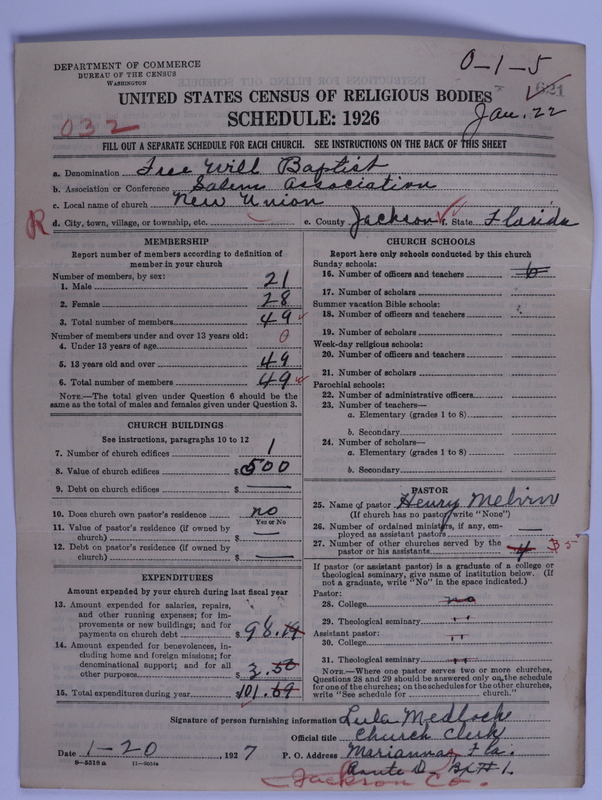 DEPARTMENT OF COMMERCE
BUREAU OF THE CENSUS
WASHINGTON
0-1-5
621
UNITED STATES CENSUS OF RELIGIOUS BODIES
SCHEDULE: 1926
Jan. 22
032
FILL OUT A SEPARATE SCHEDULE FOR EACH CHURCH. SEE INSTRUCTIONS ON THE BACK OF THIS SHEET
a. Denomination Free Will Baptist
b. Association or Conference Salem Association
c. Local name of church New Union
R d. City, town, village, or township, etc. e. County Jackson f. State Florida
MEMBERSHIP
Report number of members according to definition of member in your church
Number of members, by sex:
1. Male 21
2. Female 28
3. Total number of members 49
Number of members under and over 13 years old:
4. Under 13 years of age 0
5. 13 years old and over 49
6. Total number of members 49
NOTE.—The total given under Question 6 should be the
same as the total of males and females given under Question 3.
CHURCH BUILDINGS
See instructions, paragraphs 10 to 12
7. Number of church edifices 1
8. Value of church edifices $ 500
9. Debt on church edifices $ —
10. Does church own pastor's residence no
Yes or No
11. Value of pastor's residence (if owned by
church) $ —
12. Debt on pastor's residence (if owned by
church) $ —
EXPENDITURES
Amount expended by your church during last fiscal year
13. Amount expended for salaries, repairs,
and other running expenses; for im-
provements or new buildings; and for
payments on church debt $ 98.19
14. Amount expended for benevolences, in-
cluding home and foreign missions; for
denominational support; and for all
other purposes $ 3.50
15. Total expenditures during year $ 101.69
CHURCH SCHOOLS
Report here only schools conducted by this church
Sunday schools:
16. Number of officers and teachers
17. Number of scholars
Summer vacation Bible schools:
18. Number of officers and teachers
19. Number of scholars
Week-day religious schools:
20. Number of officers and teachers
21. Number of scholars
Parochial schools:
22. Number of administrative officers
23. Number of teachers—
a. Elementary (grades 1 to 8)
b. Secondary
24. Number of scholars—
a. Elementary (grades 1 to 8)
b. Secondary
PASTOR
25. Name of pastor Henry Melvin
(If church has no pastor, write "None")
26. Number of ordained ministers, if any, em-
ployed as assistant pastors —
27. Number of other churches served by the
pastor or his assistants 4
If pastor (or assistant pastor) is a graduate of a college or
theological seminary, give name of institution below. (If
not a graduate, write "No" in the space indicated.)
Pastor:
28. College no
29. Theological seminary "
Assistant pastor:
30. College "
31. Theological seminary "
NOTE.—Where one pastor serves two or more churches,
Questions 28 and 29 should be answered only on the schedule
for one of the churches; on the schedules for the other churches,
write "See schedule for church."
Signature of person furnishing information Lula Medlock
Official title Church Clerk
Date 1-20, 1927 P. O. Address Marianna, Fla.
8-5518a 11-5051a Route D. Bx # 1.
Jackson Co.